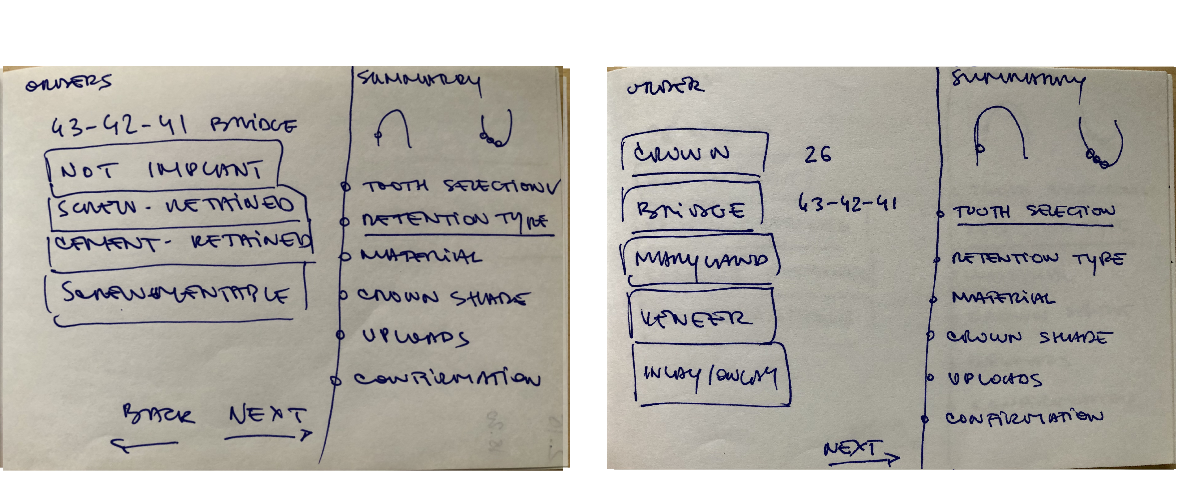 ORDERS
43-42-41 BRIDGE
NOT IMPLANT
SCREW-RETAINED
CEMENT-RETAINED
SCREWMENTABLE
BACK NEXT
SUMMARY
TOOTH SELECTION ✓
RETENTION TYPE
MATERIAL
CROWN SHADE
UPLOADS
CONFIRMATION
ORDER
CROWN 26
BRIDGE 43-42-41
MARYLAND
VENEER
INLAY/ONLAY
NEXT
SUMMARY
TOOTH SELECTION
RETENTION TYPE
MATERIAL
CROWN SHADE
UPLOADS
CONFIRMATION